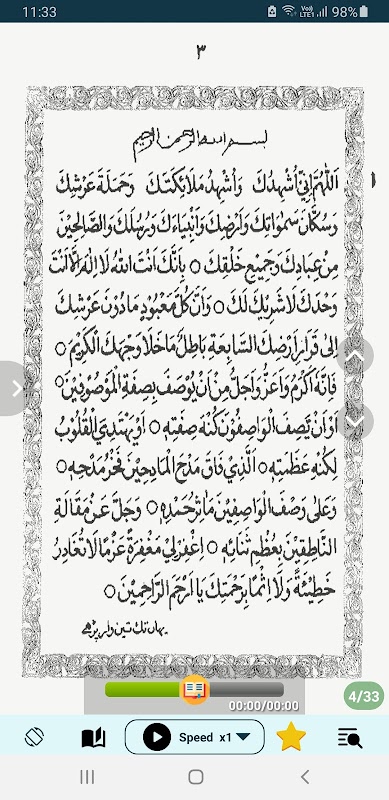 11:33
Vo))
LTE1
98%
٣
بسم الله الرحمن الرحيم
اَللّٰهُمَّ اِنِّيْ اُشْهِدُكَ وَاُشْهِدُ مَلَائِكَتَكَ وَحَمَلَةَ عَرْشِكَ
وَسُكَّانَ سَمٰوَاتِكَ وَاَرْضِكَ وَاَنْبِيَاءَكَ وَرُسُلَكَ وَالصَّالِحِيْنَ
مِنْ عِبَادِكَ وَجَمِيْعِ خَلْقِكَ ○ بِاَنَّكَ اَنْتَ اللهُ لَا اِلٰهَ اِلَّا اَنْتَ
وَحْدَكَ لَا شَرِيْكَ لَكَ ○ وَاَنَّ كُلَّ مَعْبُوْدٍ مَادُوْنَ عَرْشِكَ
اِلٰى قَرَارِ اَرْضِكَ السَّابِعَةِ بَاطِلٌ مَاخَلَا وَجْهِكَ الْكَرِيْمِ ○
فَاِنَّهٗ اَكْرَمُ وَاَعَزُّ وَاَجَلُّ مِنْ اَنْ يُوْصَفَ بِصِفَةِ الْمَوْصُوْفِيْنَ ○
اَوْ اَنْ يَّصِفَ الْوَاصِفُوْنَ كُنْهَ صِفَتِهٖ ○ اَوْ يَهْتَدِيَ الْقُلُوْبُ
لِكُنْهِ عَظَمَتِهٖ ○ اَلَّذِيْ فَاقَ مَدْحَ الْمَادِحِيْنَ فَخْرُ مَدْحِهٖ ○
وَعَلٰى وَصْفَ الْوَاصِفِيْنَ مَاٰثِرُ حَمْدِهٖ ○ وَجَلَّ عَنْ مَقَالَةِ
النَّاطِقِيْنَ بِعُظْمِ ثَنَائِهٖ ○ اِغْفِرْلِيْ مَغْفِرَةً عَزْمًا لَا تُغَادِرُ
خَطِيْئَةً وَلَا اِثْمًا بِرَحْمَتِكَ يَا اَرْحَمَ الرَّاحِمِيْنَ ○
یہاں تک تین وار پڑھے
4/33
00:00/00:00
Speed x1